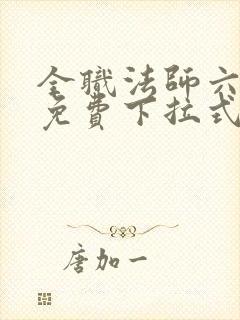 全職法師六
免費下拉式
唐加一